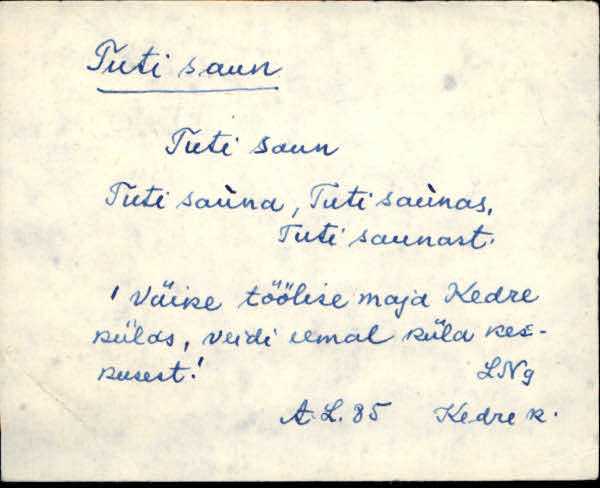 Tuti saun
Tuti saun
Tuti saùna, Tuti saùnas,
Tuti saunast.
' Väike töölise maja Kedre
külas, veidi eemal küla kes-
kusest.'
LNg
A.L. 85 Kedre k.